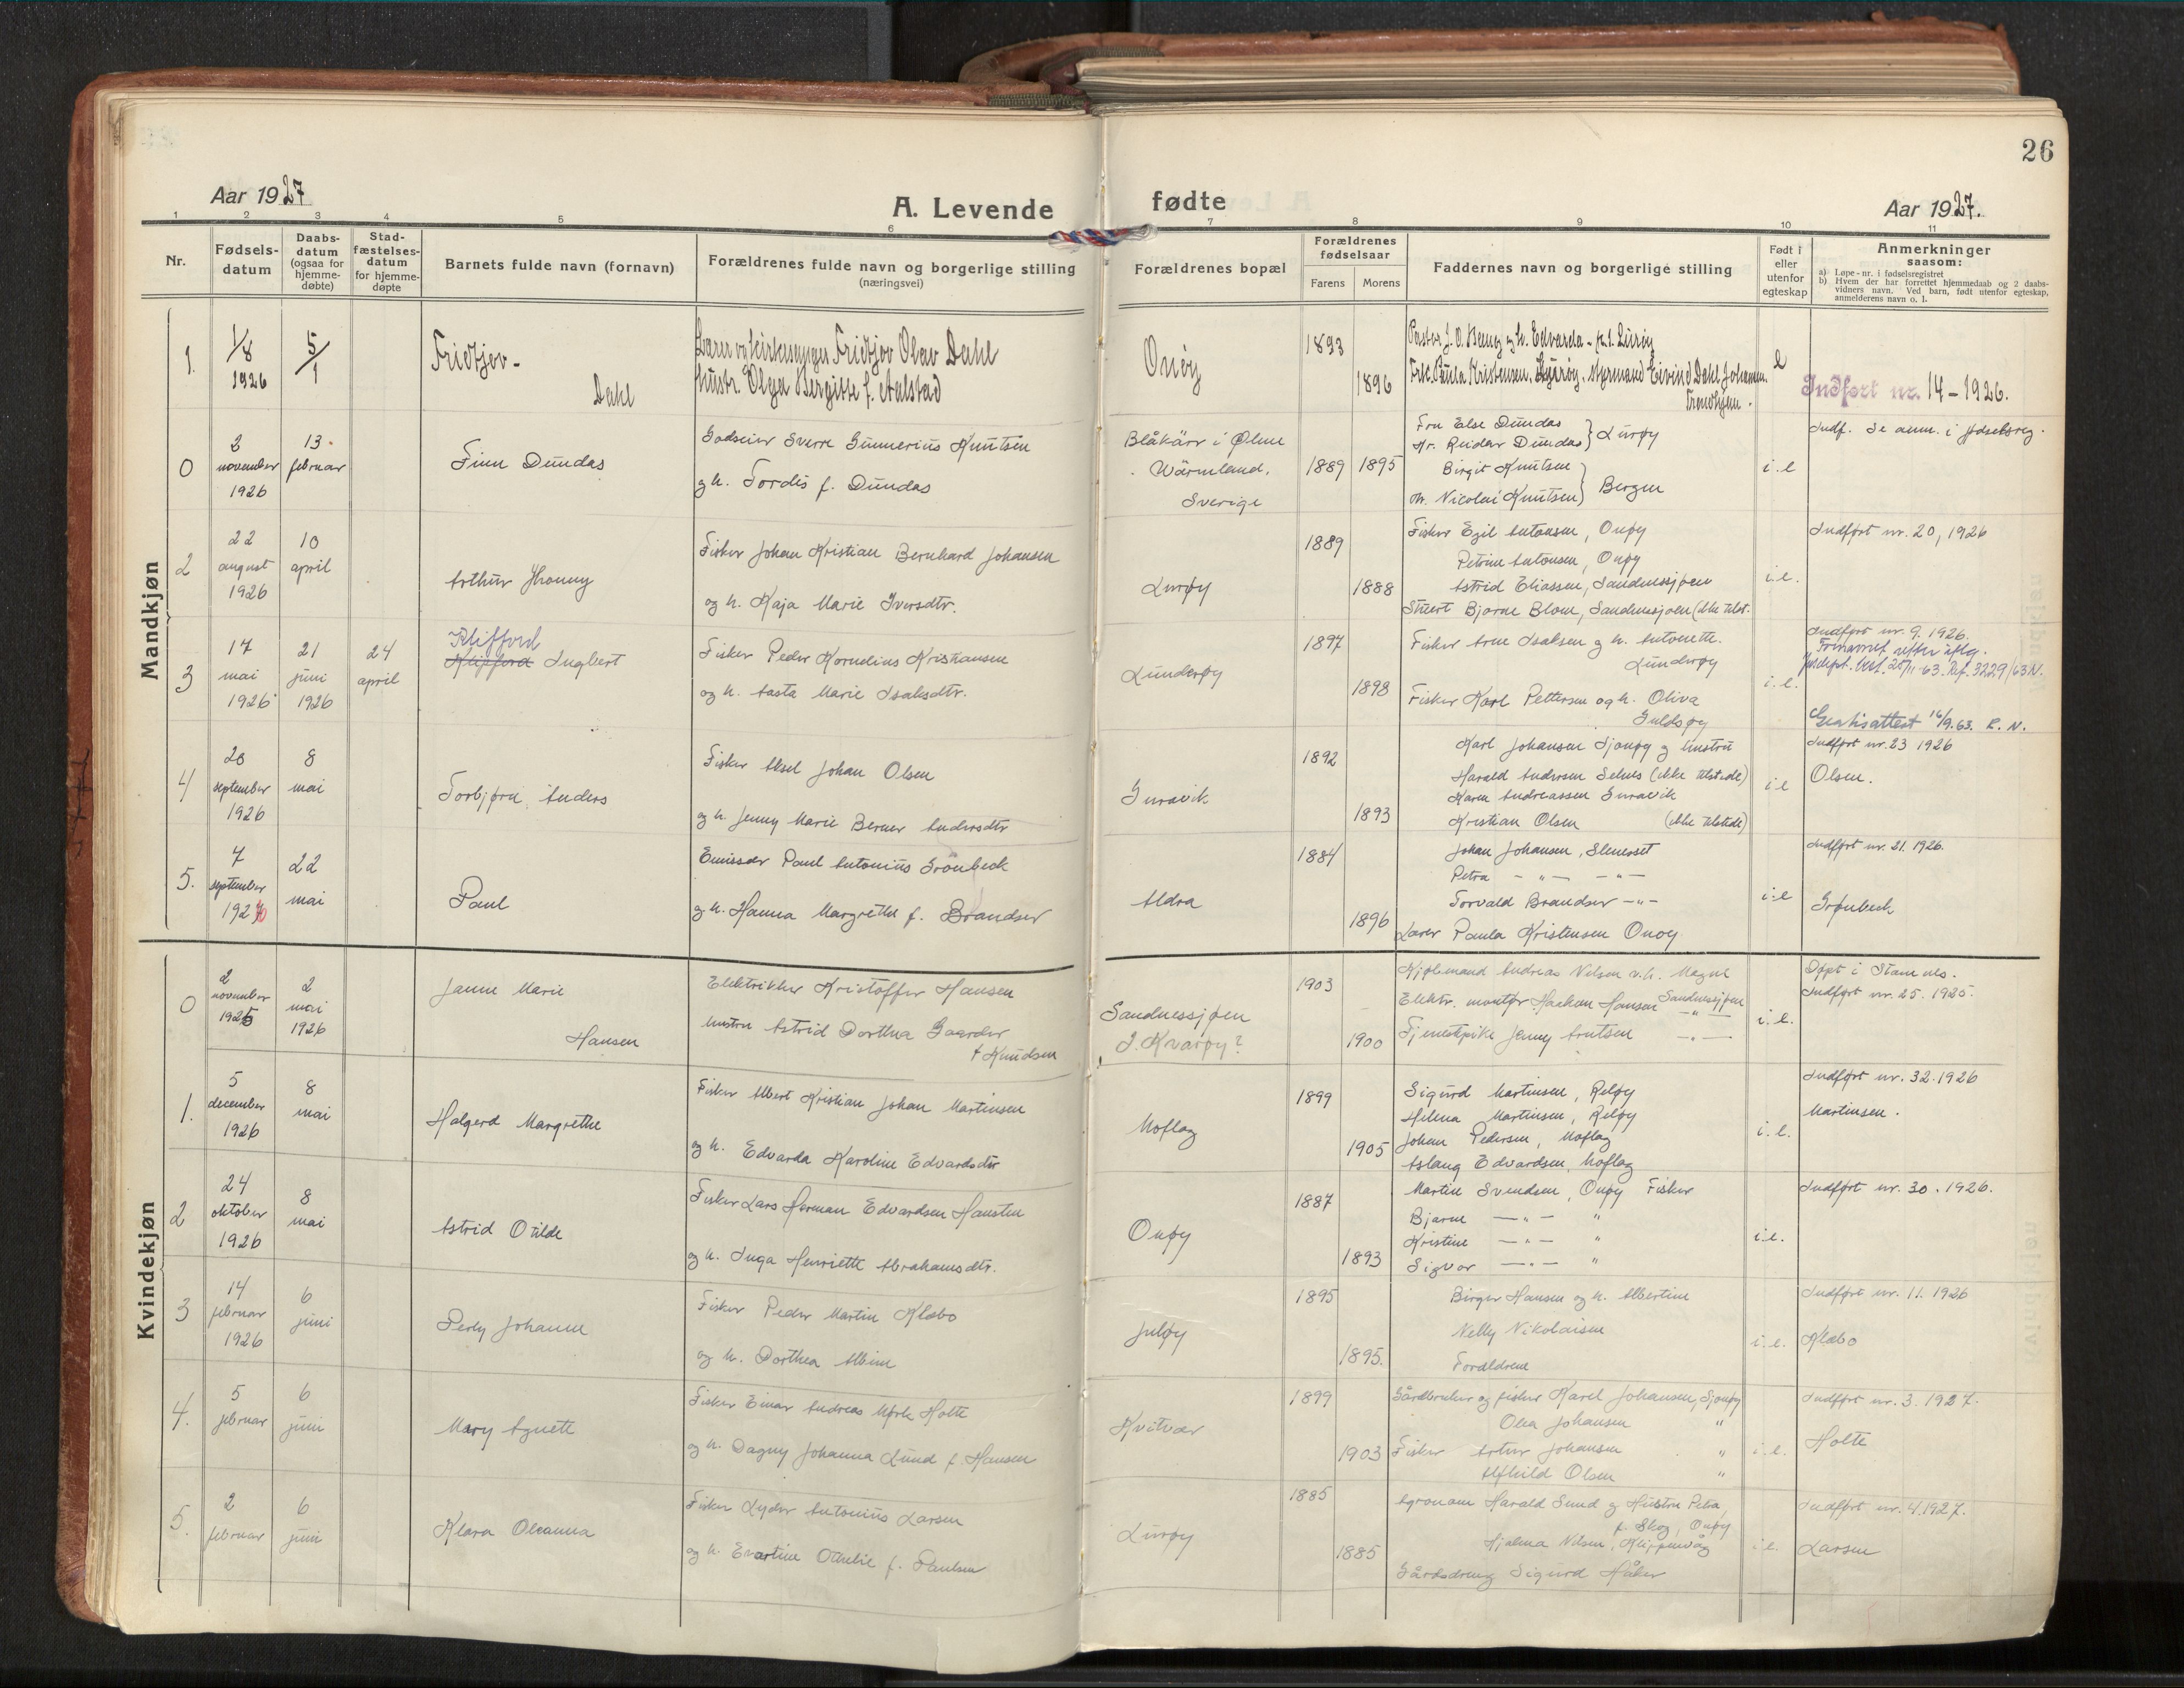 26
Aar 1927
A. Levende
fødte
Aar 1927.
1 2 3 4 5 6 7 8 9 10 11
Nr.
Fødsels-
datum
Daabs-
datum
(ogsaa for
hjemme-
døbte)
Stad-
fæstelses-
datum
for hjemme-
døpte
Barnets fulde navn (fornavn)
Forældrenes fulde navn og borgerlige stilling
(næringsvei)
Forældrenes bopæl
Forældrenes
fødselsaar
Farens Morens
Faddernes navn og borgerlige stilling
Født i
eller
utenfor
egteskap
Anmerkninger
saasom:
a) Løpe-nr. i fødselsregistret
b) Hvem der har forrettet hjemmedaab og 2 daabs-
vidners navn. Ved barn, født utenfor egteskap,
anmelderens navn o. l.
Mandkjøn
1.
1/8
1926
5/1
Fridtjov -
Dahl
Lærer og kirkesanger Fridtjov Olav Dahl
hustr. Olga Bergitte f. Aalstad
Onøy
1893
1896
Pastor J. O. og h. Edvarda - p.t. Lurøy
Frk. Paula Kristensen, Styrmand Eivind Dahl Johannes.
Trondhjem.
e
Indført nr. 14 - 1926.
0
2
november
1926
13.
februar
Finn Dundas
Godseier Sverre Gunnerius Knutsen
og h. Tordis f. Dundas
Blåkärr i Ølme
Wärmland,
Sverige
1889 1895
Fru Else Dundas
Hr. Reidar Dundas } Lurøy
Birgit Knutsen
Nicolai Knutsen } Bergen
i.e
Indf. Se anm. i fødselsreg.
2
22
august
1926
10
april
Arthur Jhonny
Fisker Johan Kristian Bernhard Johansen
og h. Kaja Marie Iversdtr.
Lurøy
1889
1888
Fisker Egil Antonsen, Onøy
Petrine Antonsen, Onøy
Astrid Eliassen, Sandnessjøen
Bjarne Blom, Sandnessjøen (ikke tilst.
i.e.
Indført nr. 20, 1926
3
17
mai
1926
21
juni
1926
24
april
Klifford
Klifford Ingbert
Fisker Peder Kornelius Kristiansen
og h. Aasta Marie Isaksdtr.
Lunderøy
1897
1898
Fisker Arne Isaksen og h. Antonette.
Lunderøy
Fisker Karl Pettersen og h. Oliva
Guldsøy
i.e.
Indført nr. 9. 1926.
Fornavnet rettet
3229/63 N.
Gratisattest 16/9.63. R. N.
4
20
september
1926
8
mai
Torbjørn Anders
Fisker Aksel Johan Olsen
og h. Jenny Marie Berner Andersdtr
Suravik
1892
1893
Karl Johansen Sjonøy og hustru
Harald Andersen Selnes (ikke tilstede)
Karen Andreassen Suravik
Kristian Olsen (ikke tilstede)
i.e
Indført nr. 23 1926
Olsen.
5.
7
september
1926
22
mai
Paul
Emissær Paul Antonius Grønbeck
og h. Hanna Margrethe f. Brandser
Aldra
1884
1896
Johan Johansen, Stenesset
Petra - " - - " -
Torvald Brandser - " -
Lærer Paula Kristensen Onøy
i.e
Indført nr. 21. 1926.
Grønbeck
Kvindekjøn
0
2
november
1925
2
mai
1926
Janne Marie
Hansen
Elektriker Kristoffer Hansen
hustru Astrid Dorthea Gaarder
f. Knudsen
Sandnessjøen
I. Kvarøy?
1903
1900
Kjøbmand Andreas Nilsen v.h. Magna
Elektr. montør Haakon Hansen Sandnessjøen
Tjenestepike Jenny Arntsen - " -
i.e.
Døpt i Stamnes.
Indført nr. 25. 1925.
1.
5
december
1926
8
mai
Halgerd Margrethe
Fisker Albert Kristian Johan Martinsen
og h. Edvarda Karoline Edvardsdtr
Moflag
1899
1905
Sigurd Martinsen, Reløy
Helena Martinsen, Reløy
Johan Pedersen, Moflag
Aslaug Edvardsen, Moflag
i.e.
Indført nr. 32. 1926
Martinsen.
2
24
oktober
1926
8
mai
Astrid Otilde
Fisker Lars Herman Edvardsen Hansten
og h. Inga Henriette Abrahamsdtr.
Onøy
1887
1893
Martin Svendsen, Onøy Fisker
Bjarne - " - "
Kristine - " - "
Sigvor - " - "
i.e.
Indført nr. 30. 1926.
3
14
februar
1926
6
juni
Perly Johanne
Fisker Peder Martin Klæbo
og h. Dorthea Albine
Juløy
1895
1895.
Birger Hansen og h. Albertine
Nelly Nikolaisen
Forældrene
i.e.
Indført nr. 11. 1926
Klæbo
4.
5
februar
6
juni
Mary Agnete
Fisker Einar Andreas Mørk Holte
og h. Dagny Johanna Lund f. Hansen
Kvitvær
1899
1903
Gårdbruker og fisker Karel Johansen, Sjonøy
Olea Johansen "
Fisker Artur Johansen "
Alfhild Olsen "
i.e.
Indført nr. 3. 1927.
Holte
5.
2
februar
6
juni
Klara Oleanna
Fisker Lyder Antonius Larsen
og h. Evartine Othelie f. Paulsen
Lurøy
1885
1885
Agronom Harald Sund og Hustru Petra,
f. Skog, Onøy
Hjalma Nilsen, Klippenvåg
Gårdsdreng Sigurd Håker
i.e.
Indført nr. 4. 1927.
Larsen